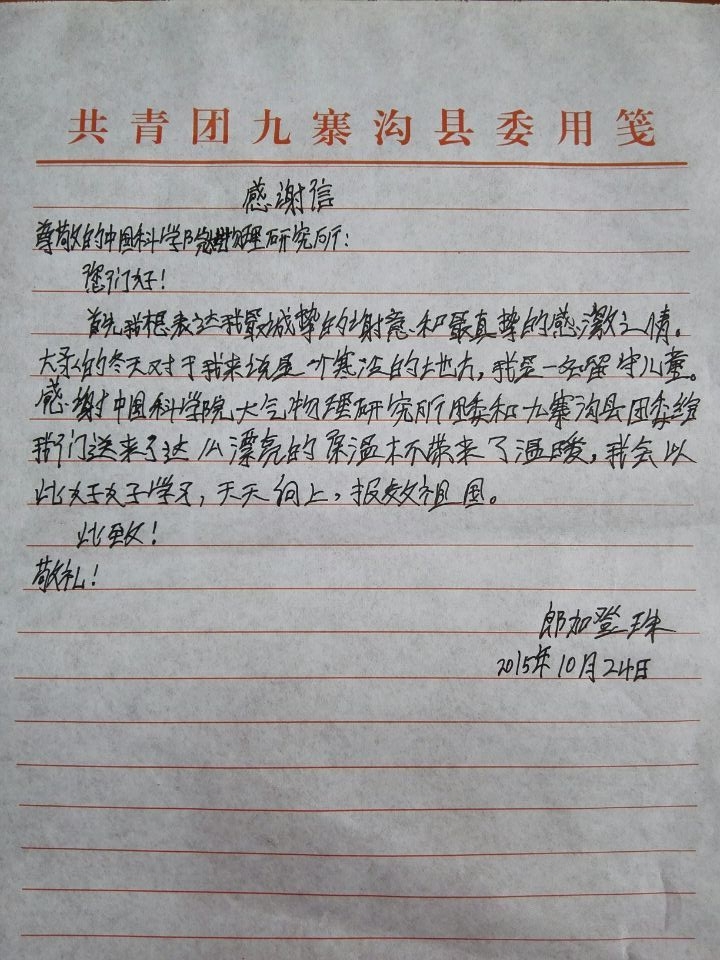 共青团九寨沟县委用笺
感谢信
尊敬的中国科学院物理研究所：
您们好！
首先我想表达我最诚挚的谢意和最真挚的感激之情。
大录的冬天对于我来说是个寒冷的地方，我是一名留守儿童。
感谢中国科学院大气物理研究所团委和九寨沟县团委给
我们送来了这么漂亮的保温杯带来了温暖，我会以
此好好学习，天天向上，报效祖国。
此致！
敬礼！
郎加登珠
2015年10月24日